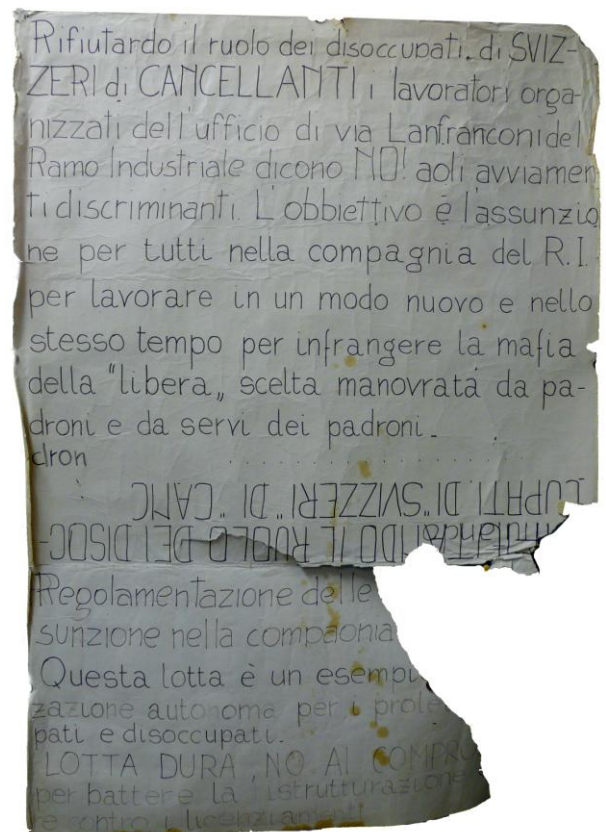 Rifiutardo il ruolo dei disoccupati. di SVIZ-
ZERI di CANCELLANTI i lavoratori orga-
nizzati dell'ufficio di via Lanfranconi del
Ramo Industriale dicono NO! aoli avviamen
ti discriminanti. L'obbiettivo é l'assunzio
ne per tutti nella compagnia del R.I.
per lavorare in un modo nuovo e nello
stesso tempo per infrangere la mafia
della "libera„ scelta manovrata da pa-
droni e da servi dei padroni.
dron
CUPATI DI "SVIZZERI" DI "CANC
IL RUOLO DEI DISOC-
Regolamentazione delle
sunzione nella compaonia
Questa lotta è un esempi
zazione autonoma per i prole
pati e disoccupati.
LOTTA DURA, NO AI COMPRO
per battere la istrutturazione
e contro i licenziamenti